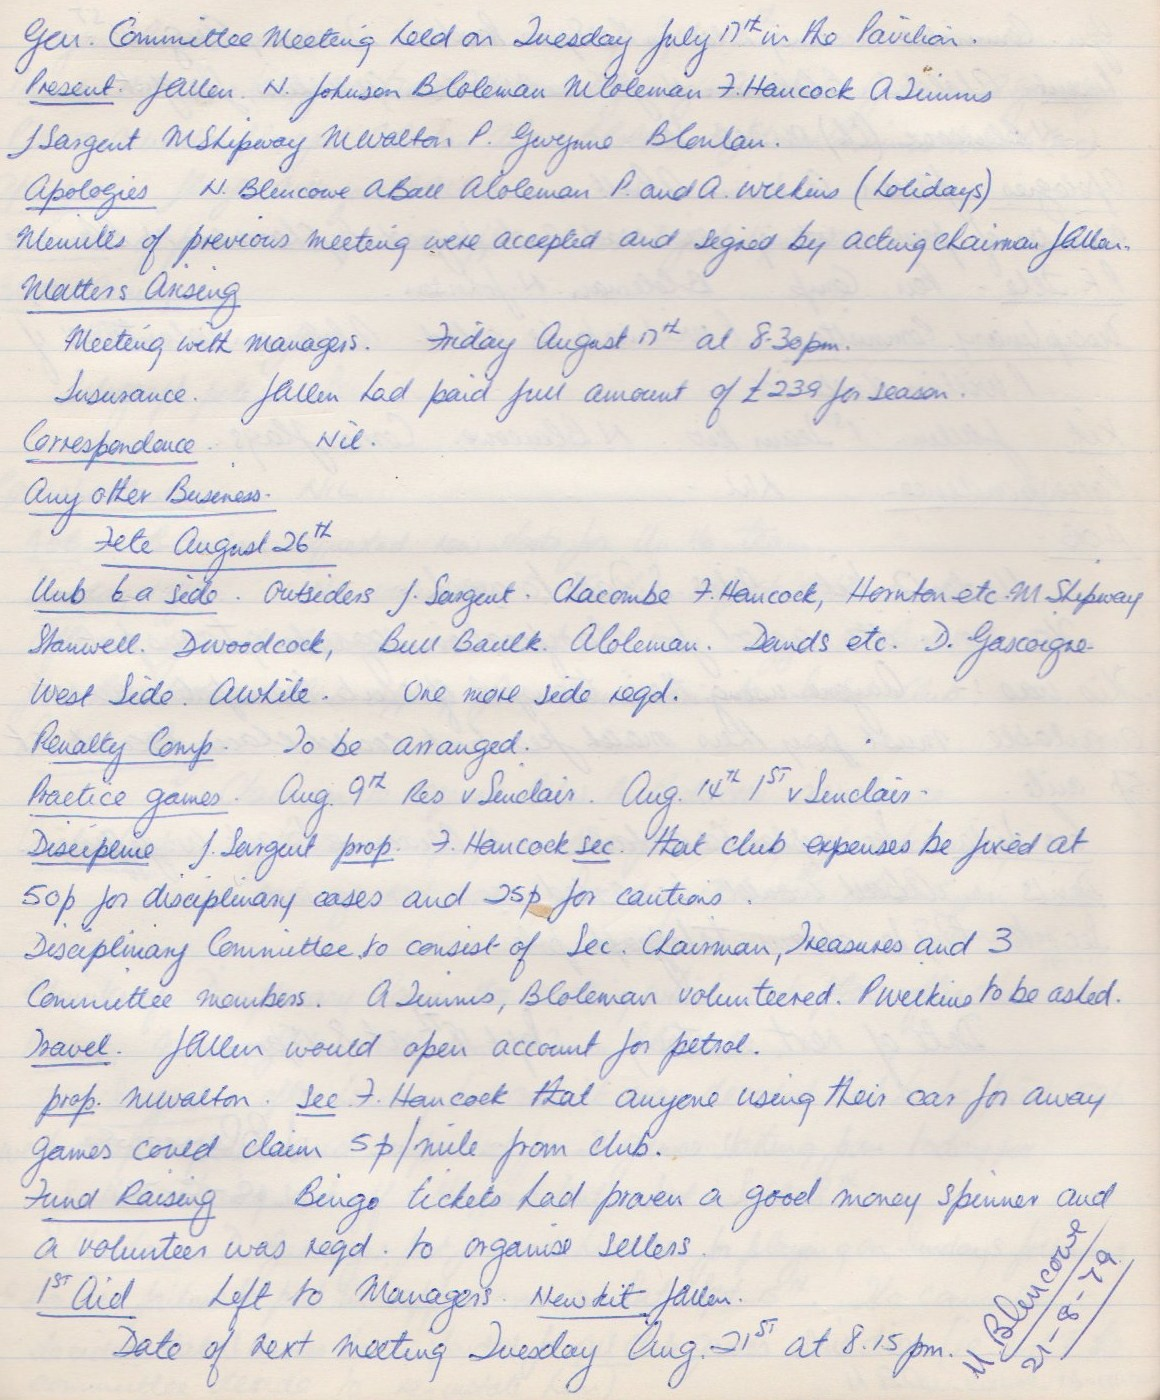 Gen. Committee Meeting held on Tuesday July 17th in the Pavilion.
Present. J Allen. N. Johnson B Coleman M Coleman F. Hancock A Timms
J Sargent M Shipway M Walton P. Gwynne B Conlan.
Apologies N. Blencowe A Ball A Coleman P. and A. Wilkins (holidays)
Minutes of previous meeting were accepted and signed by acting chairman J Allen.
Matters Arising
Meeting with managers. Friday August 17th at 8.30pm.
Insurance. J Allen had paid full amount of £239 for season.
Correspondence. Nil.
Any other Business.
Fete August 26th
Club 6 a side. Outsiders J. Sargent. Chacombe F. Hancock, Hornton etc. M Shipway
Stanwell. D Woodcock, Bull Baulk. A Coleman. Dands etc. D. Gascoigne
West Side. A White. One more side reqd.
Penalty Comp. To be arranged.
Practice games. Aug. 9th Res v Sinclair. Aug. 14th 1st v Sinclair.
Discipline J. Sargent prop. F. Hancock sec. that club expenses be fixed at
50p for disciplinary cases and 25p for cautions.
Disciplinary Committee to consist of Sec. Chairman, Treasures and 3
Committee members. A Timms, B Coleman volunteered. P Wilkins to be asked.
Travel. J Allen would open account for petrol.
prop. M Walton. Sec F. Hancock that anyone using their car for away
games could claim 5p/mile from club.
Fund Raising Bingo tickets had proven a good money spinner and
a volunteer was reqd. to organise sellers.
1st Aid Left to Managers. New kit J Allen.
Date of next meeting Tuesday Aug. 21st at 8.15pm.
N Blencowe
21-8-79